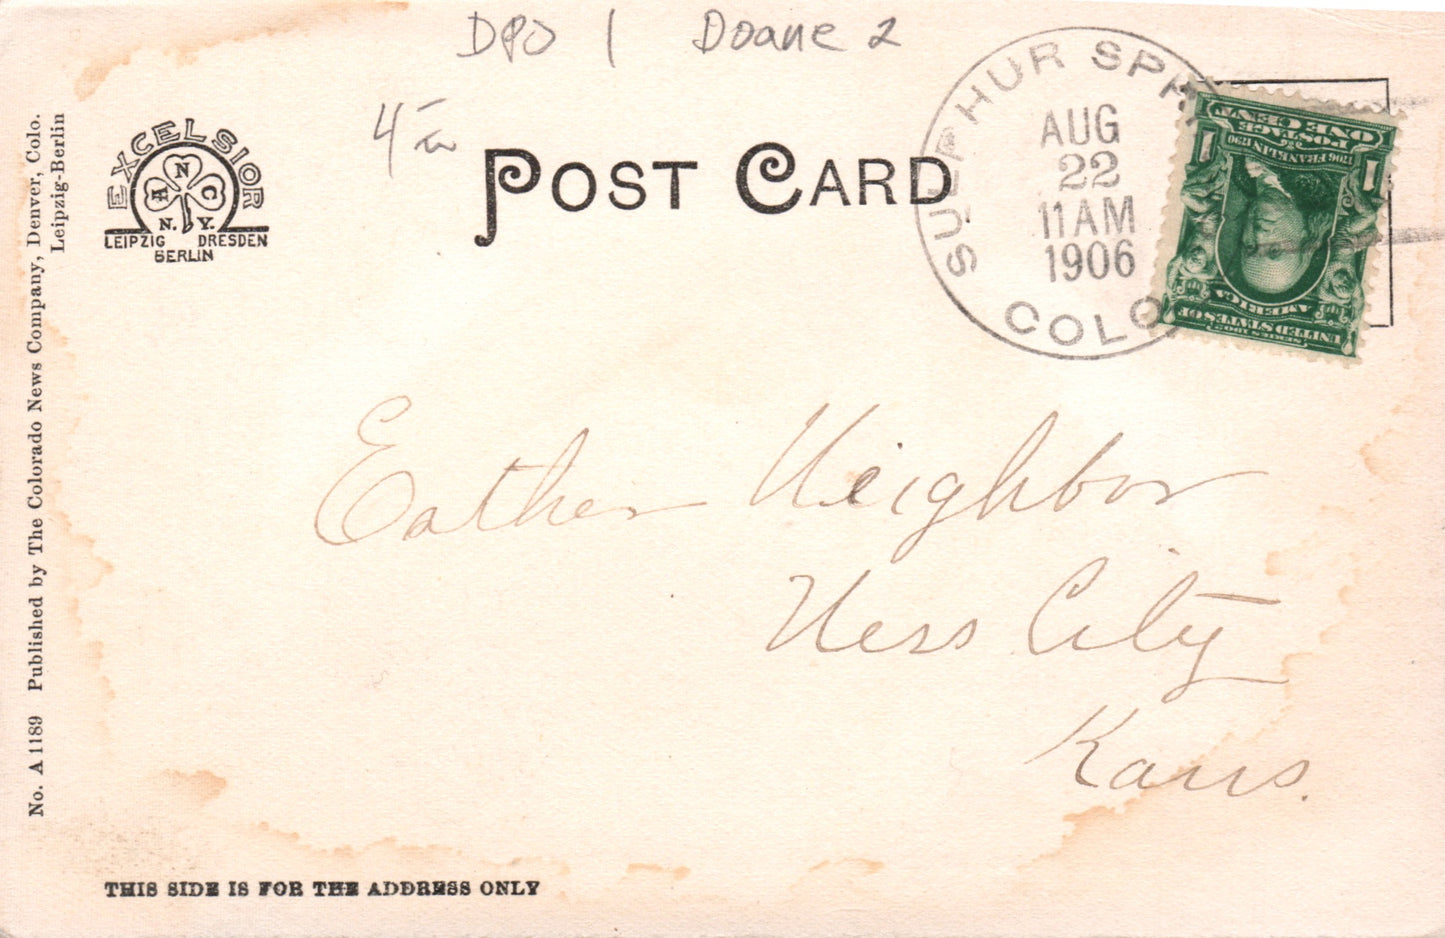 DPO 1 Doane 2
4 —
EXCELSIOR
A N C
N. Y.
LEIPZIG DRESDEN
BERLIN
POST CARD
SULPHUR SPR
AUG
22
11 AM
1906
COLO
1 1
POSTAGE
ONE CENT
1706 FRANKLIN 1790
SERIES 1902
UNITED STATES OF
AMERICA
No. A 1189 Published by The Colorado News Company, Denver, Colo.
Leipzig-Berlin
Esther Neighbor
Ness City
Kans.
THIS SIDE IS FOR THE ADDRESS ONLY